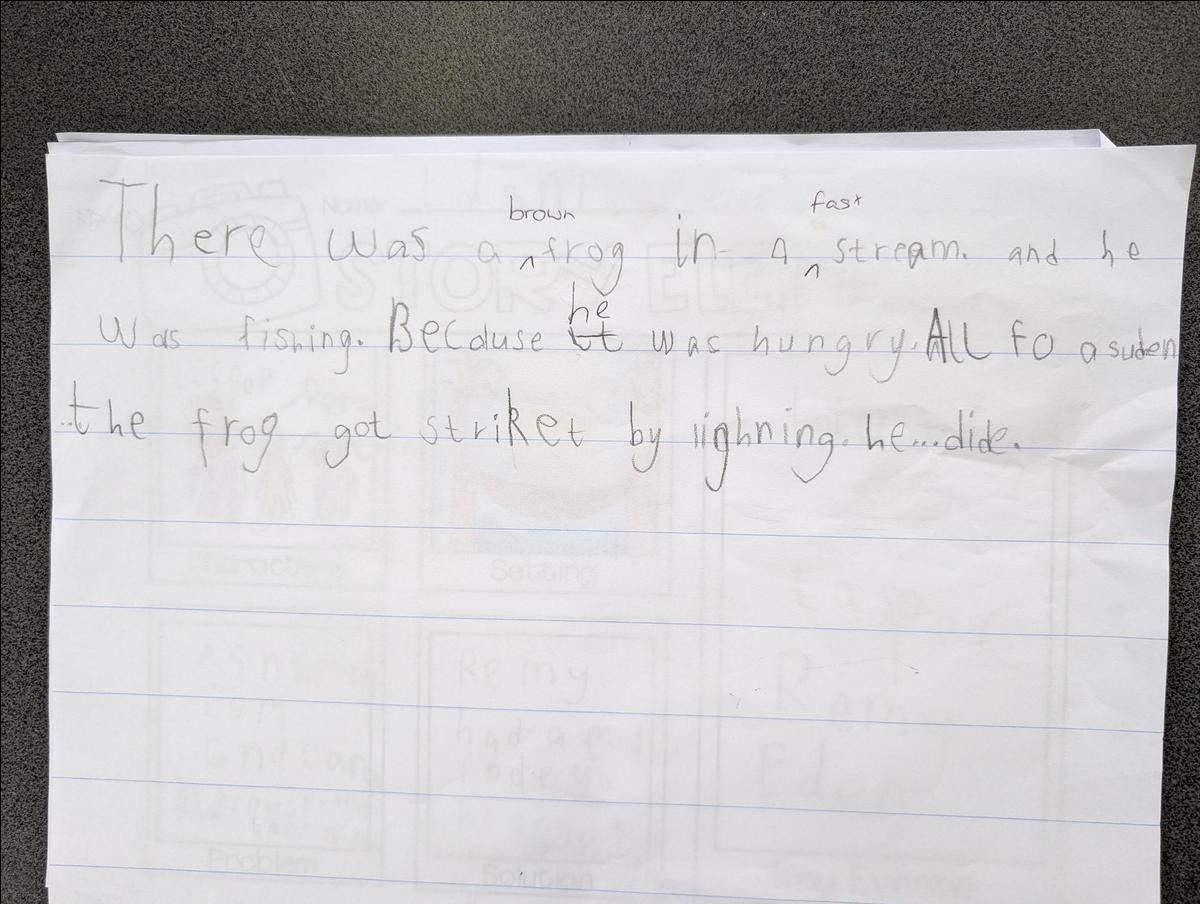 There was a brown frog in a fast stream. and he
was fishing. Because he was hungry. All fo a suden
the frog got striket by lighning. he... dide.
STORY
Name
Setting
Problem
Solution
Remy